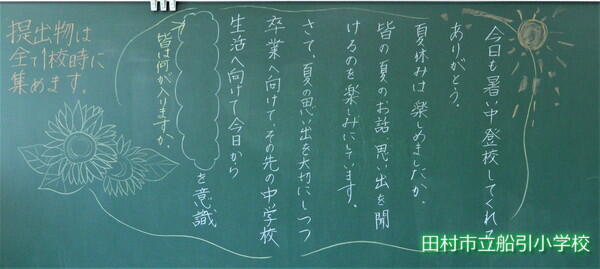 今日も暑い中登校してくれて
ありがとう。
夏休みは楽しめましたか。
皆の夏のお話、思い出を聞
けるのを楽しみにしています。
さて、夏の思い出を大切にしつつ
卒業へ向けて、その先の中学校
生活へ向けて今日から
を意識
皆は何が入りますか。
提出物は
全て1校時に
集めます。
田村市立船引小学校